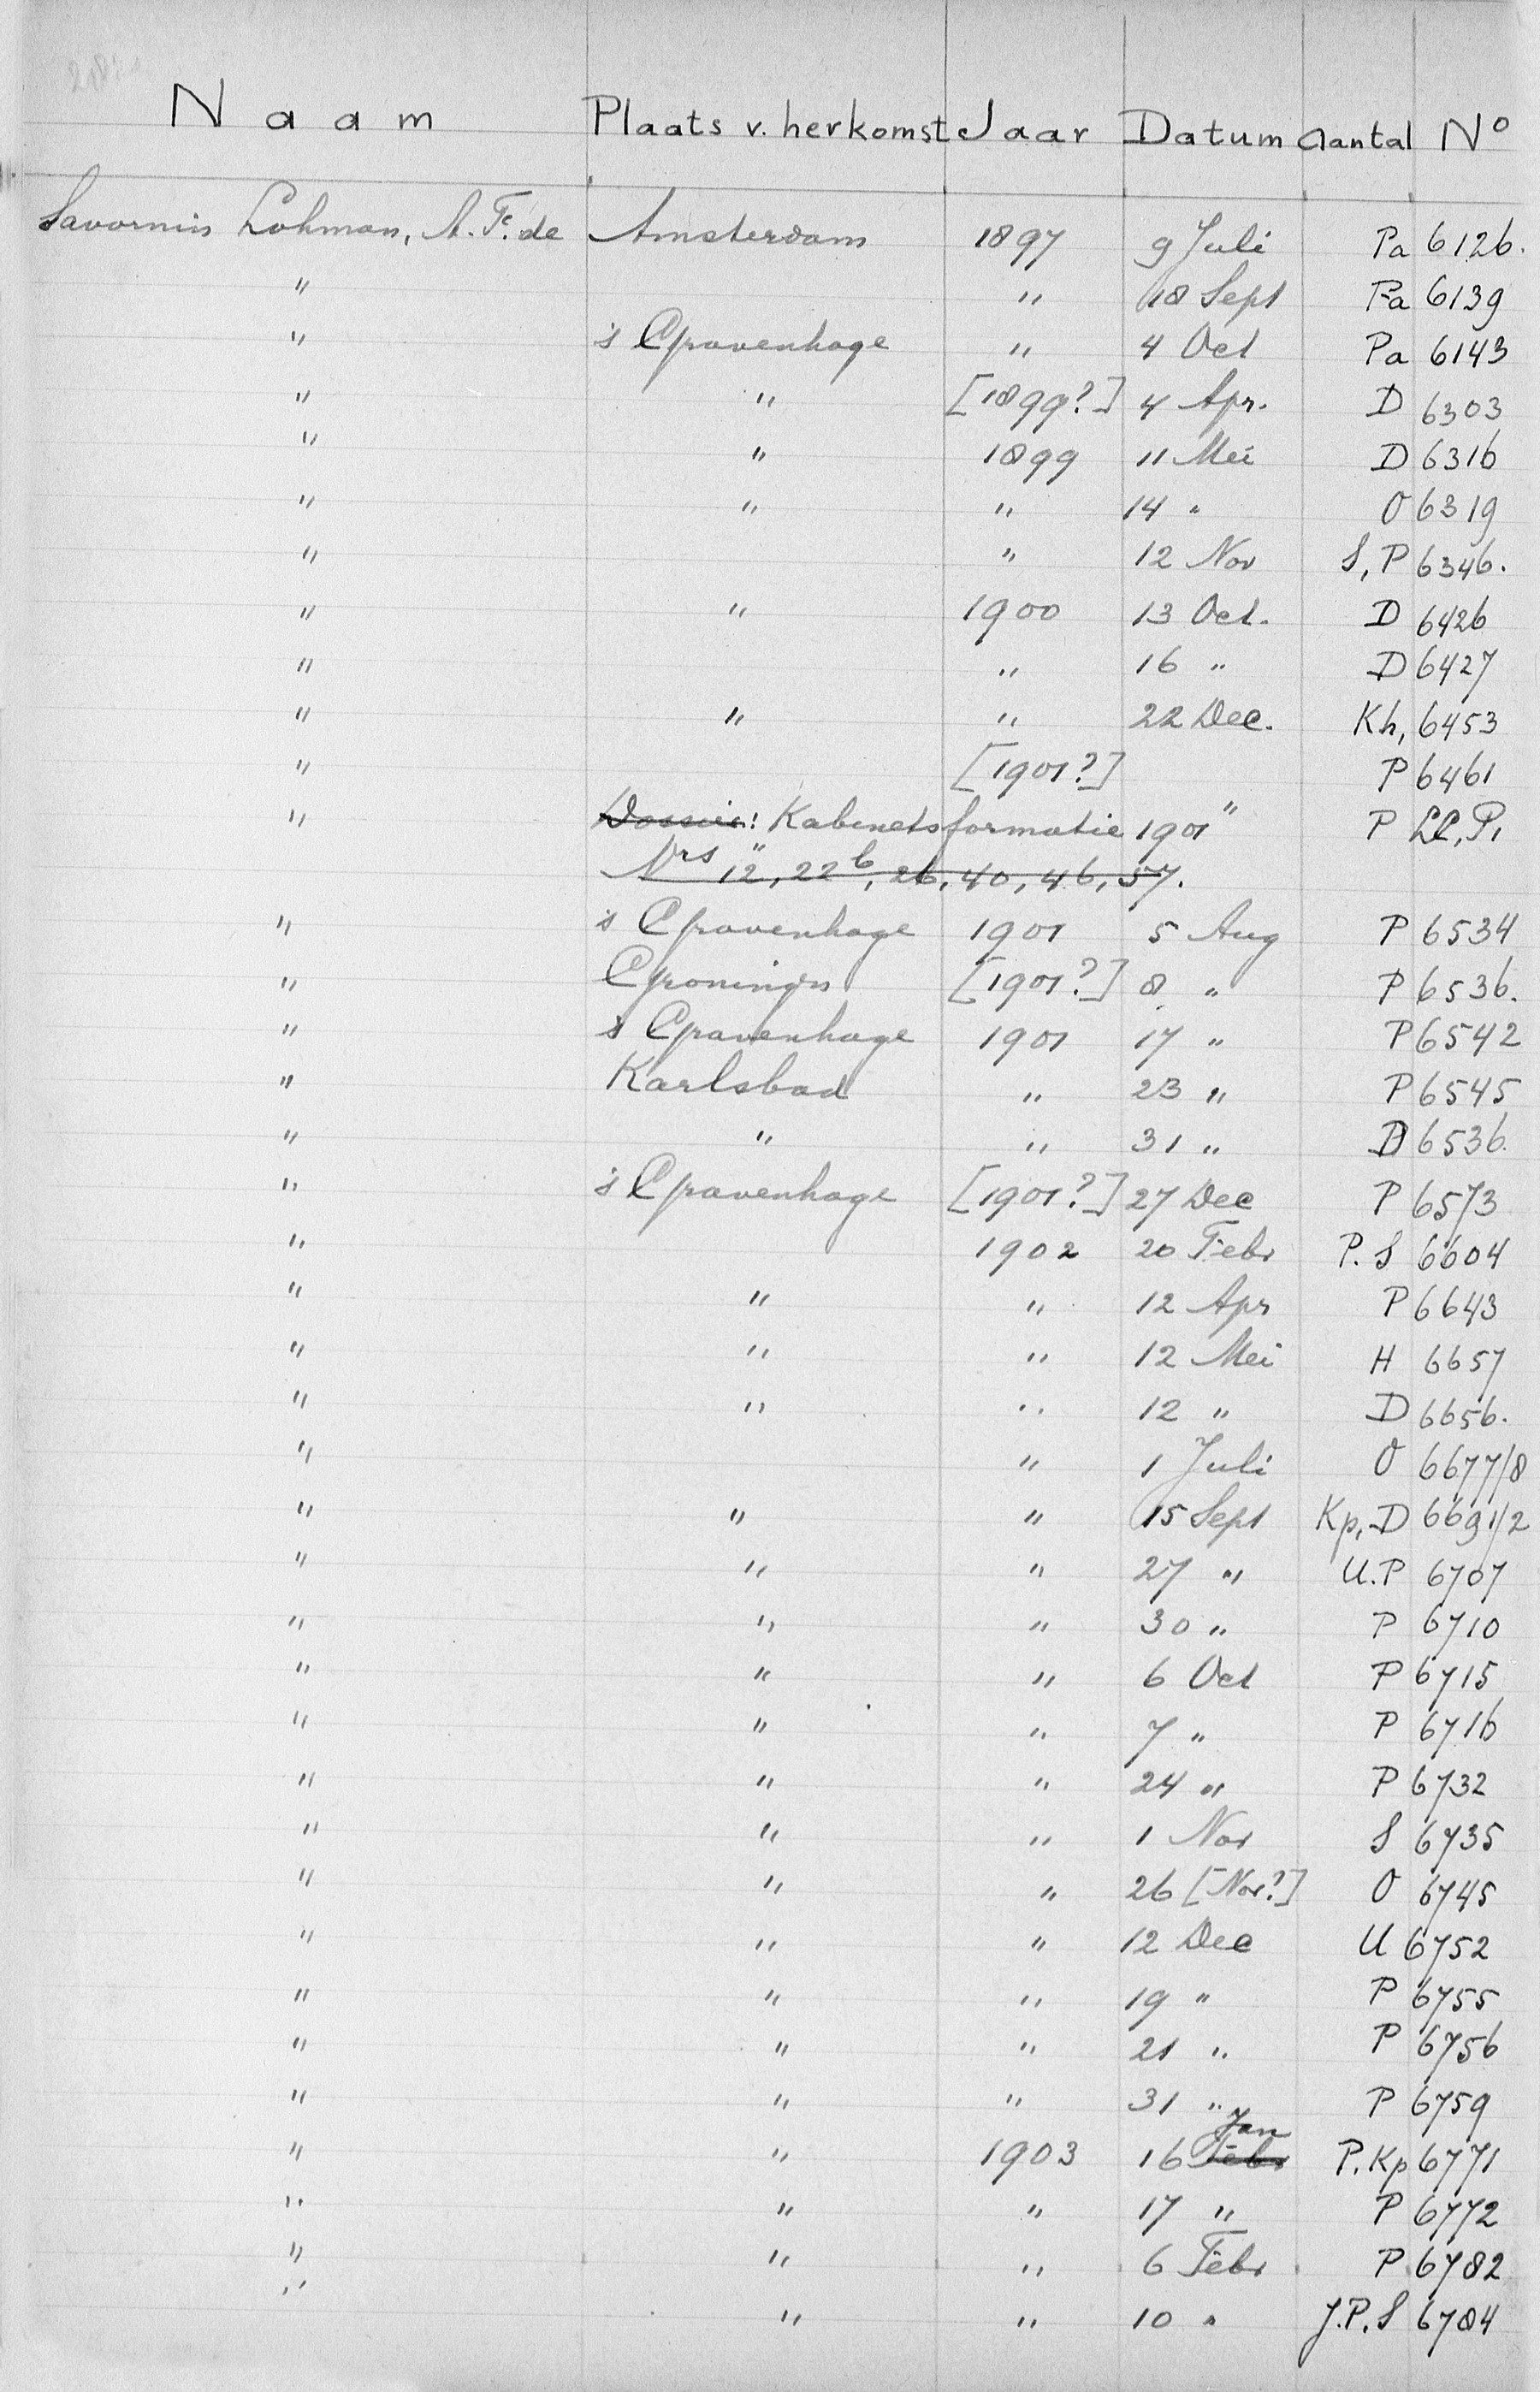 Naam Plaats v. herkomst Jaar Datum Aantal Nº
Savornin Lohman, A. F. de Amsterdam 1897 9 Juli Pa 6126.
" " 18 Sept Pa 6139
" 's Gravenhage " 4 Oct Pa 6143
" " [1899?] 4 Apr. D 6303
" " 1899 11 Mei D 6316
" " " 14 " O 6319
" " 12 Nov S, P 6346.
" " 1900 13 Oct. D 6426
" " 16 " D 6427
" " " 22 Dec. Kh, 6453
" [1901?] P 6461
" Dossier: "Kabinetsformatie 1901" P LL, P,
Nrs 12, 22b, 26, 40, 46, 57.
" 's Gravenhage 1901 5 Aug P 6534
" Groningen [1901?] 8 " P 6536.
" 's Gravenhage 1901 17 " P 6542
" Karlsbad " 23 " P 6545
" " " 31 " D 6536.
" 's Gravenhage [1901?] 27 Dec P 6573
" 1902 20 Febr P. S 6604
" " " 12 Apr P 6643
" " " 12 Mei H 6657
" " " 12 " D 6656.
" " 1 Juli O 6677/8
" " " 15 Sept Kp, D 6691/2
" " " 27 " U. P 6707
" " " 30 " P 6710
" " " 6 Oct P 6715
" " " 7 " P 6716
" " " 24 " P 6732
" " " 1 Nov S 6735
" " " 26 [Nov?] O 6745
" " " 12 Dec U 6752
" " " 19 " P 6755
" " " 21 " P 6756
" " " 31 " P 6759
" " 1903 16 Febr Jan P. Kp 6771
" " " 17 " P 6772
" " " 6 Febr P 6782
" " " 10 " J. P. S 6784